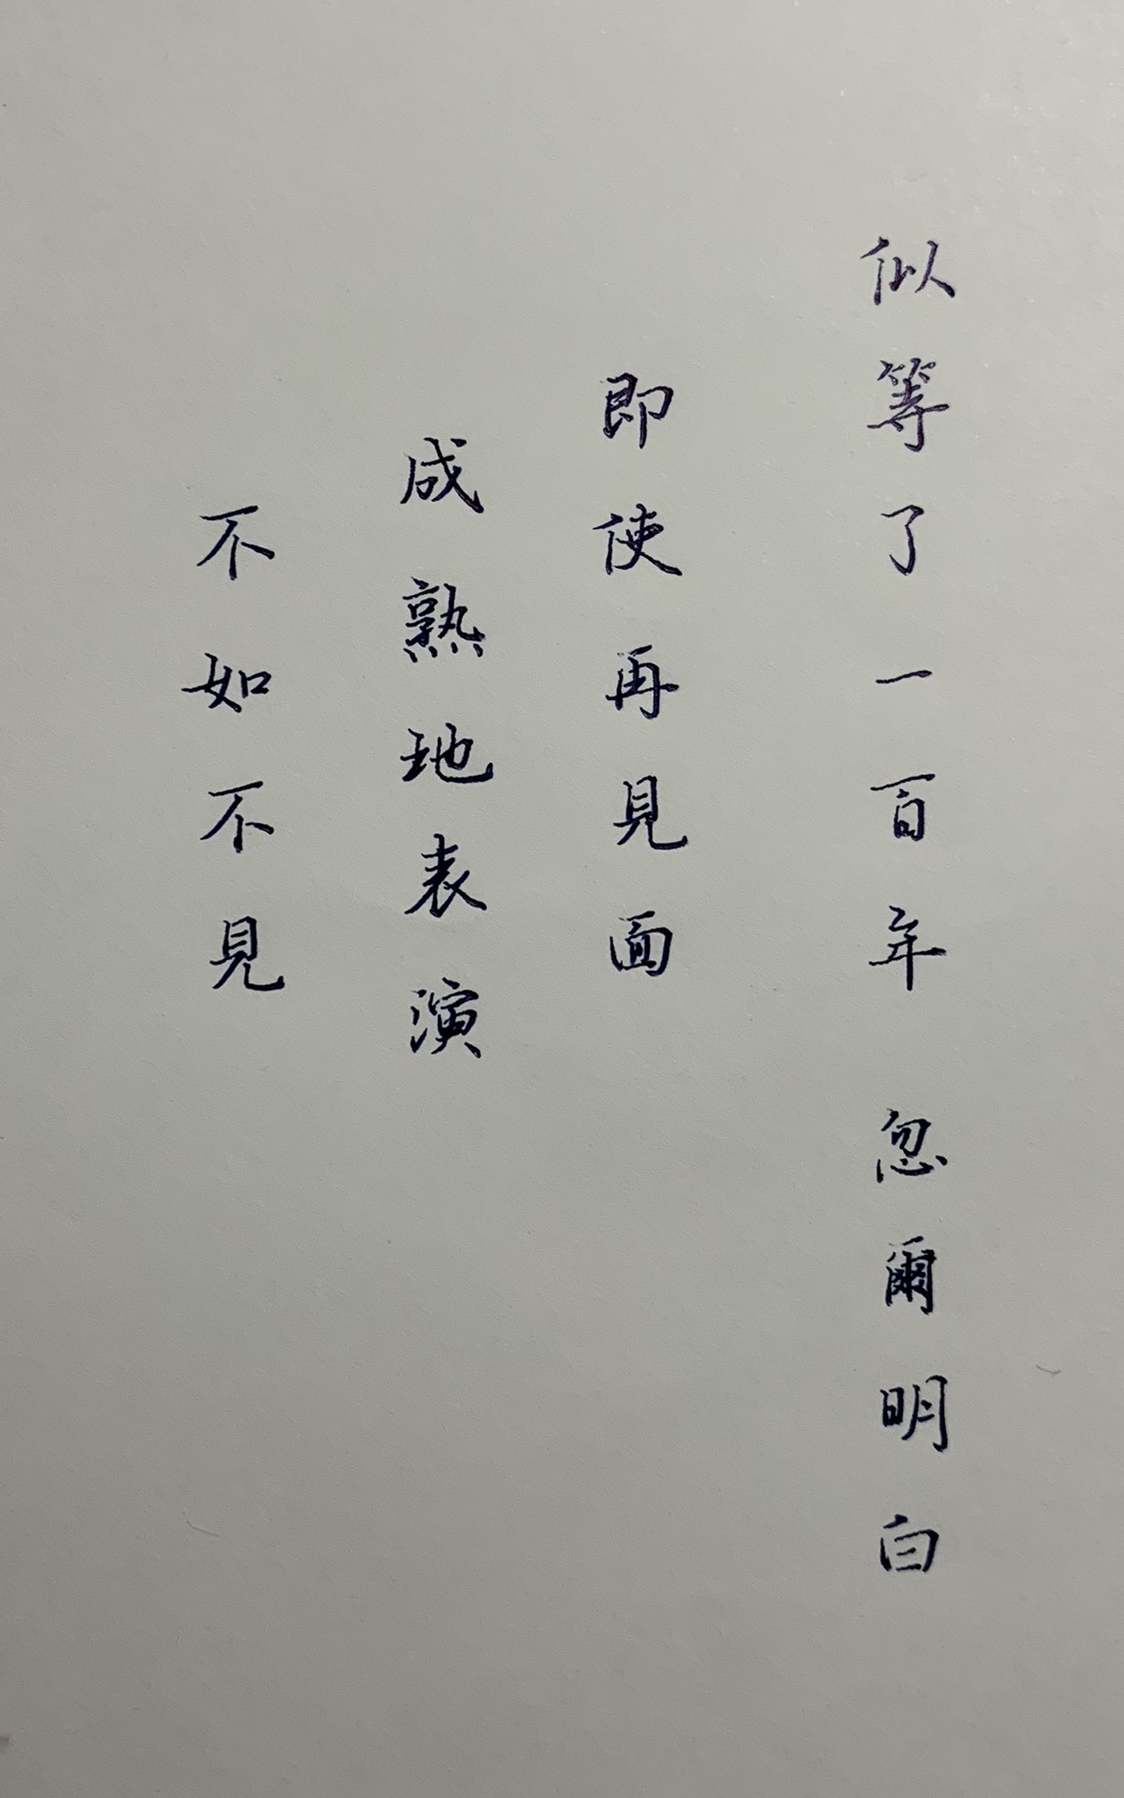 似等了一百年 忽爾明白
即使再見面
成熟地表演
不如不見